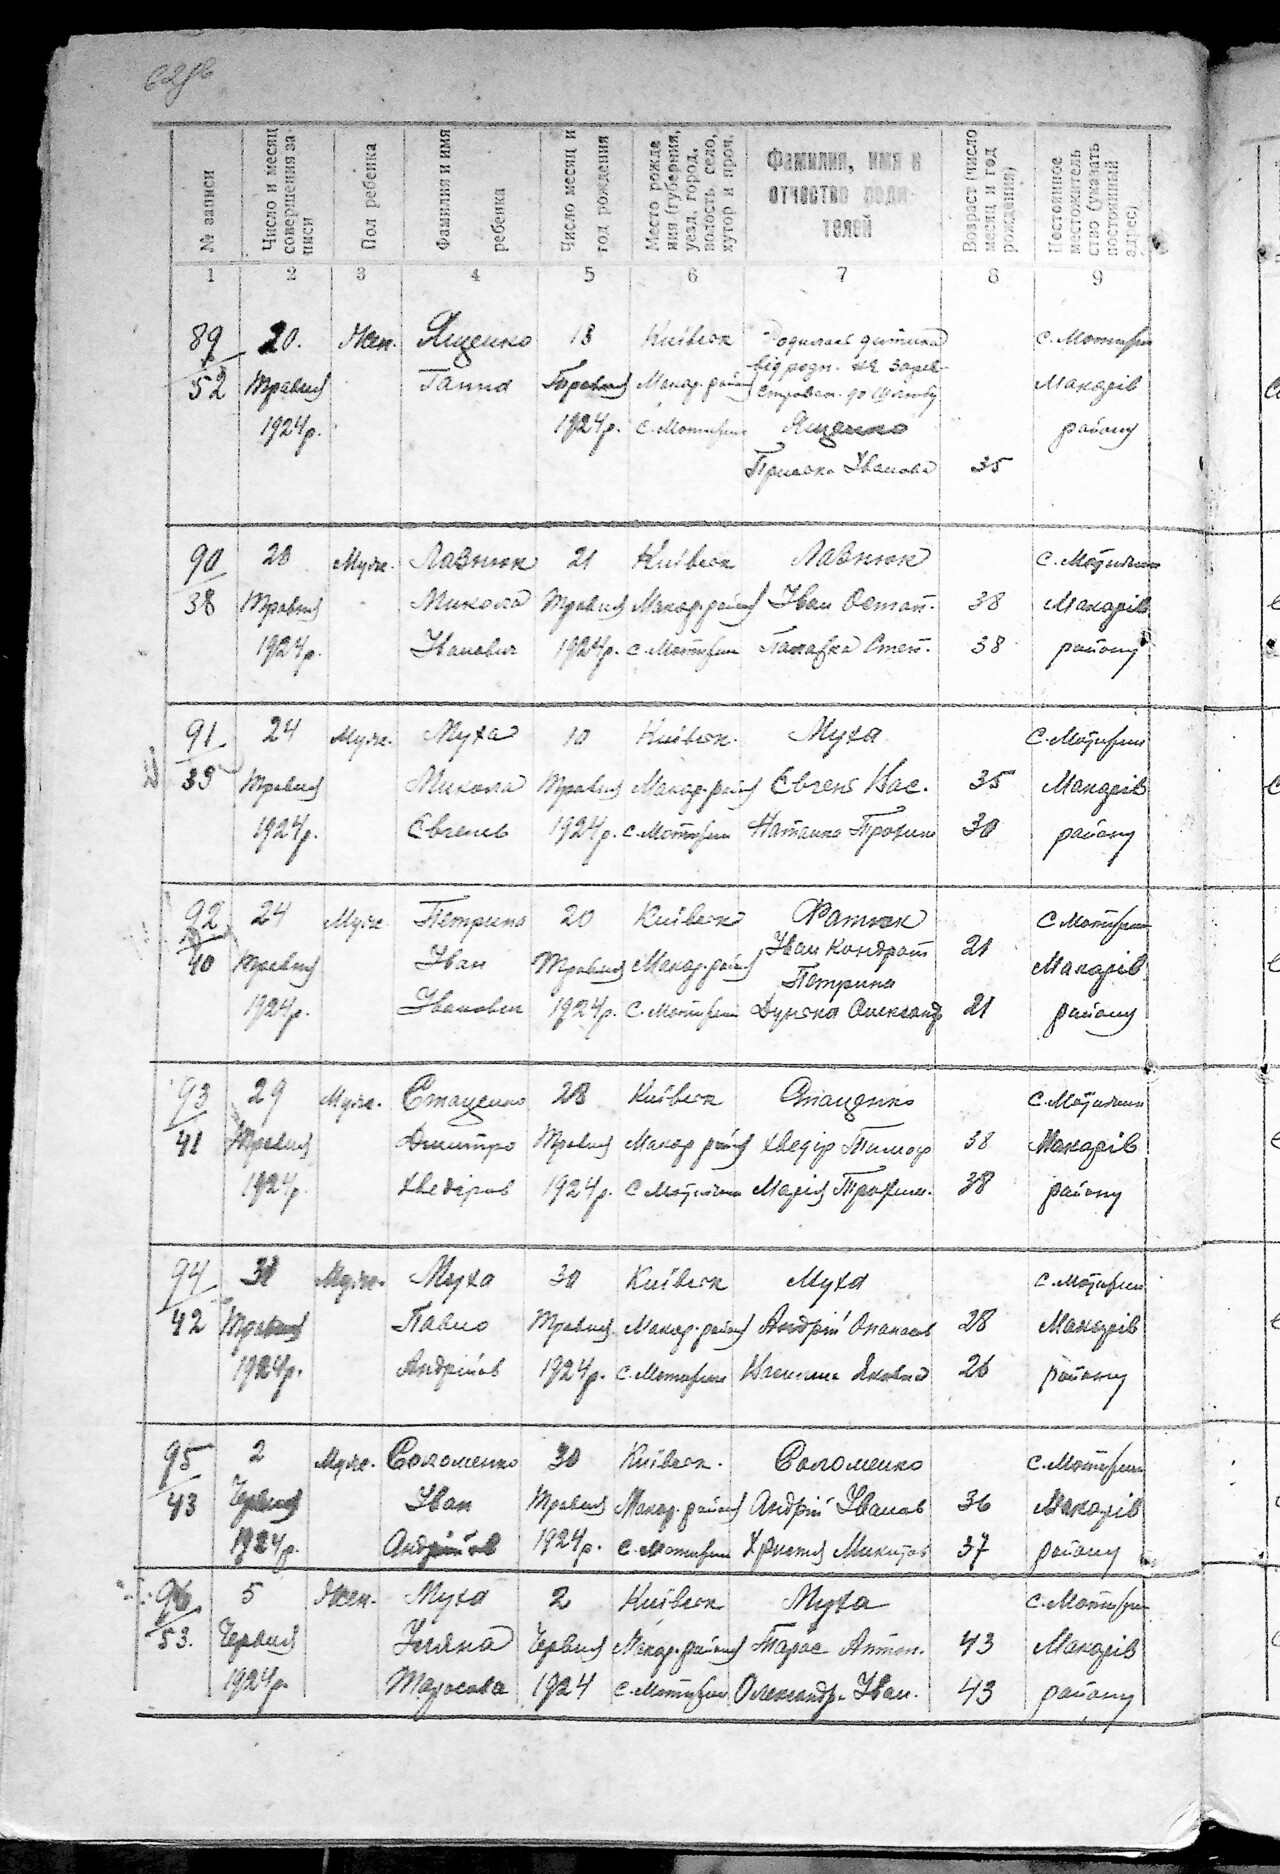 № записи
Число и месяц совершения записи
Пол ребенка
Фамилия и имя ребенка
Число месяц и год рождения
Место рождения (губерния, уезд, город, волость, село, хутор и проч.
Фамилия, имя и отчество родителей
Возраст (число месяц и год рождения)
Постоянное местожительство (указать постоянный адрес)
1 2 3 4 5 6 7 8 9
89 20. Жен. Ященко 18 Київськ Родилась дитина с. Мотижин
від родн. не зареє-
52 Травня Ганна Травня Макар. район строван. до шлюбу Макарів
1924р. 1924р. с. Мотижин Ященко району
Іванова 35
90 28 Муж. Лавнюк 21 Київськ Лавнюк с. Мотижин
38 Травня Микола Травня Макар. район Іван Остап. 38 Макарів
1924р. Іванович 1924р. с. Мотижин Степ. 38 району
91 24 Муж. Муха 10 Київськ. Муха с. Мотижин
39 Травня Микола Травня Макар. район Євген Вас. 35 Макарів
1924р. Євгень 1924р. с. Мотижин Наталка Трохим 30 району
92 24 Муж Петрина 20 Київськ с. Мотижин
Іван Кондрат 21
40 Травня Іван Травня Макар. район Макарів
Петрина
1924р. Іванович 1924р. с. Мотижин Олександ 21 району
93 29 Муж. Стаценко 28 Київськ Стаценко с. Мотижин
41 Травня Дмитро Травня Макар район Хведір Тимоф 38 Макарів
1924р Хведіров 1924р. с. Мотижин Марія Трохим. 38 району
94 31 Муж. Муха 30 Київськ Муха с. Мотижин
42 Травня Павло Травня Макар. район Андрій Опанасів 28 Макарів
1924р. Андрійов 1924р. с. Мотижин Яковна 26 району
95 2 Муж. Соломенко 30 Київськ. Соломенко с. Мотижин
43 Червня Іван Травня Макар. район Андрій Іванов 36 Макарів
1924р. Андрійов 1924р. с. Мотижин Христя Микитов 37 району
96 5 Жен. Муха 2 Київськ Муха с. Мотижин
53. Червня Уляна Червня Макар. район Тарас Антон. 43 Макарів
1924р. Тарасова 1924 с. Мотижин Олександр. Іван. 43 району